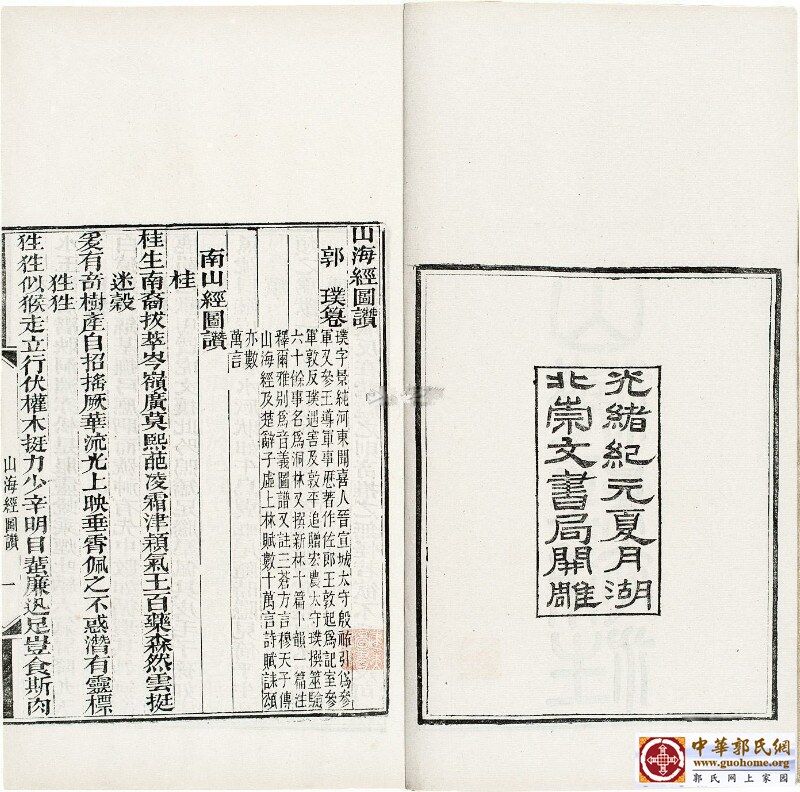 光緒紀元夏月湖
北崇文書局開雕
山海經圖讚
郭璞卷
璞字景純河東聞喜人晉宣城太守殷祐引爲參
軍又參王導軍事歷著作佐郎王敦起爲記室參
軍敦反璞遇害及敦平追贈宏農太守璞撰筮驗
六十餘事名爲洞林又撰新林十篇卜韻一篇注
釋爾雅別爲音義圖譜又註三蒼方言穆天子傳
山海經及楚辭子虛上林賦數十萬言詩賦誄頌
亦數
萬言
南山經圖讚
桂
桂生南裔拔萃岑嶺廣莫熙葩凌霜津穎氣王百藥森然雲挺
迷穀
爰有奇樹產自招搖厥華流光上映垂霄佩之不惑潛有靈標
狌狌
狌狌似猴走立行伏櫂木挺力少辛明目蜚廉迅足豈食斯肉
山海經圖讚
一
中華郭氏網
www.guohome.org
郭氏网上家园